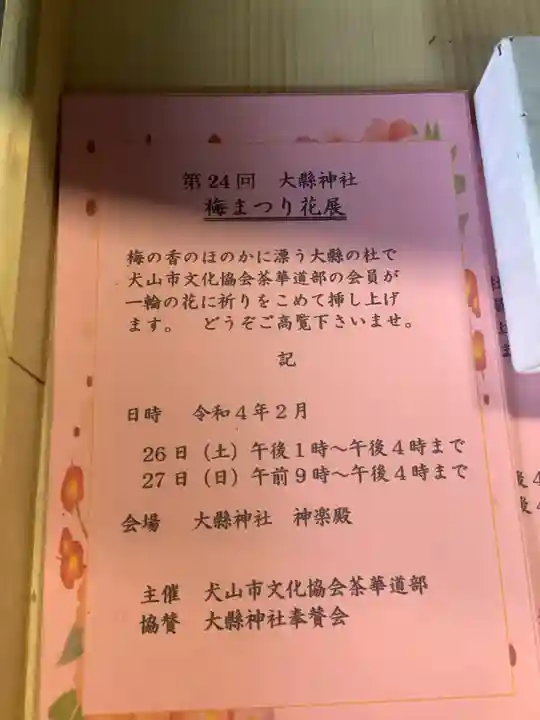 第24回 大縣神社
梅まつり花展
梅の香のほのかに漂う大縣の杜で
犬山市文化協会茶華道部の会員が
一輪の花に祈りをこめて挿し上げ
ます。 どうぞご高覧下さいませ。
記
日時 令和4年2月
26日(土)午後1時～午後4時まで
27日(日)午前9時～午後4時まで
会場 大縣神社 神楽殿
主催 犬山市文化協会茶華道部
協賛 大縣神社奉賛会